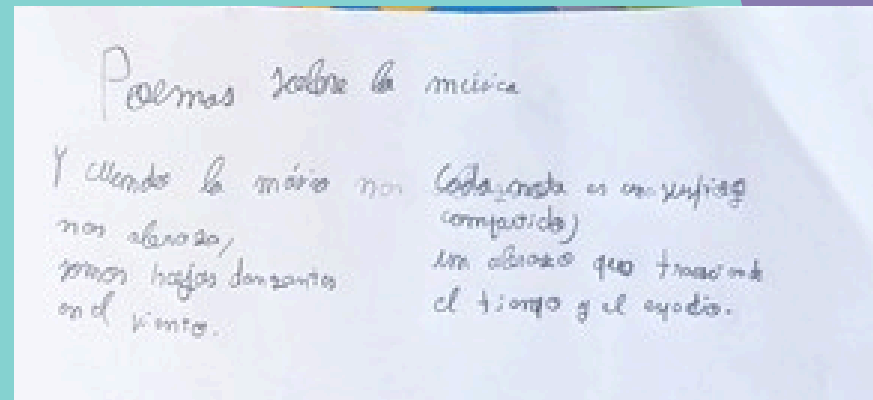 Poemas sobre la música
Y cuando la música nos
nos abraza,
somos hojas danzantes
en el viento.
Cada nota es un suspiro
compartido,
un abrazo que trasciende
el tiempo y el espacio.